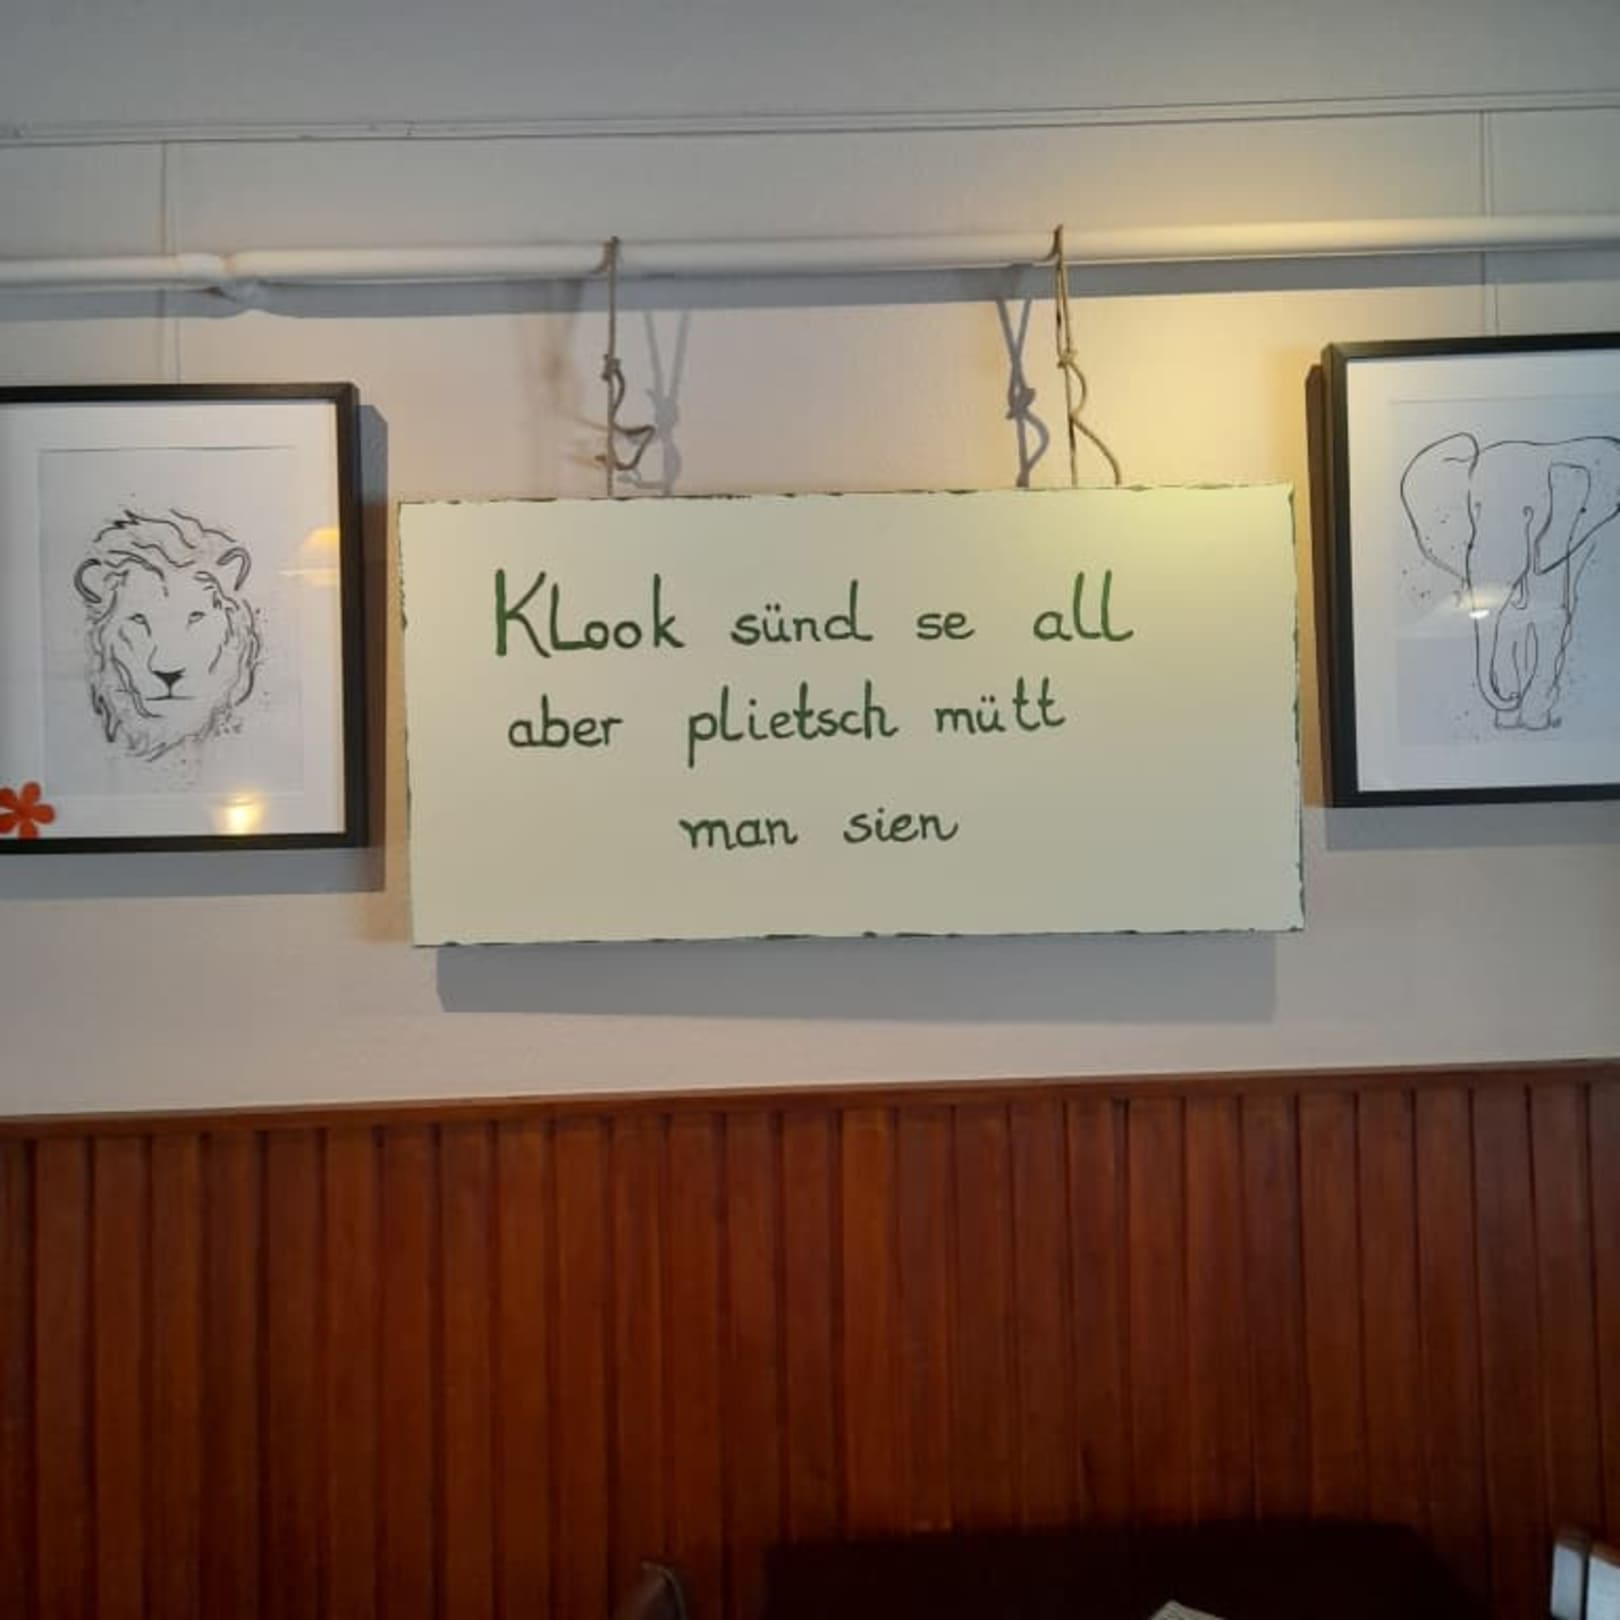 Klook sünd se all
aber plietsch mütt
man sien